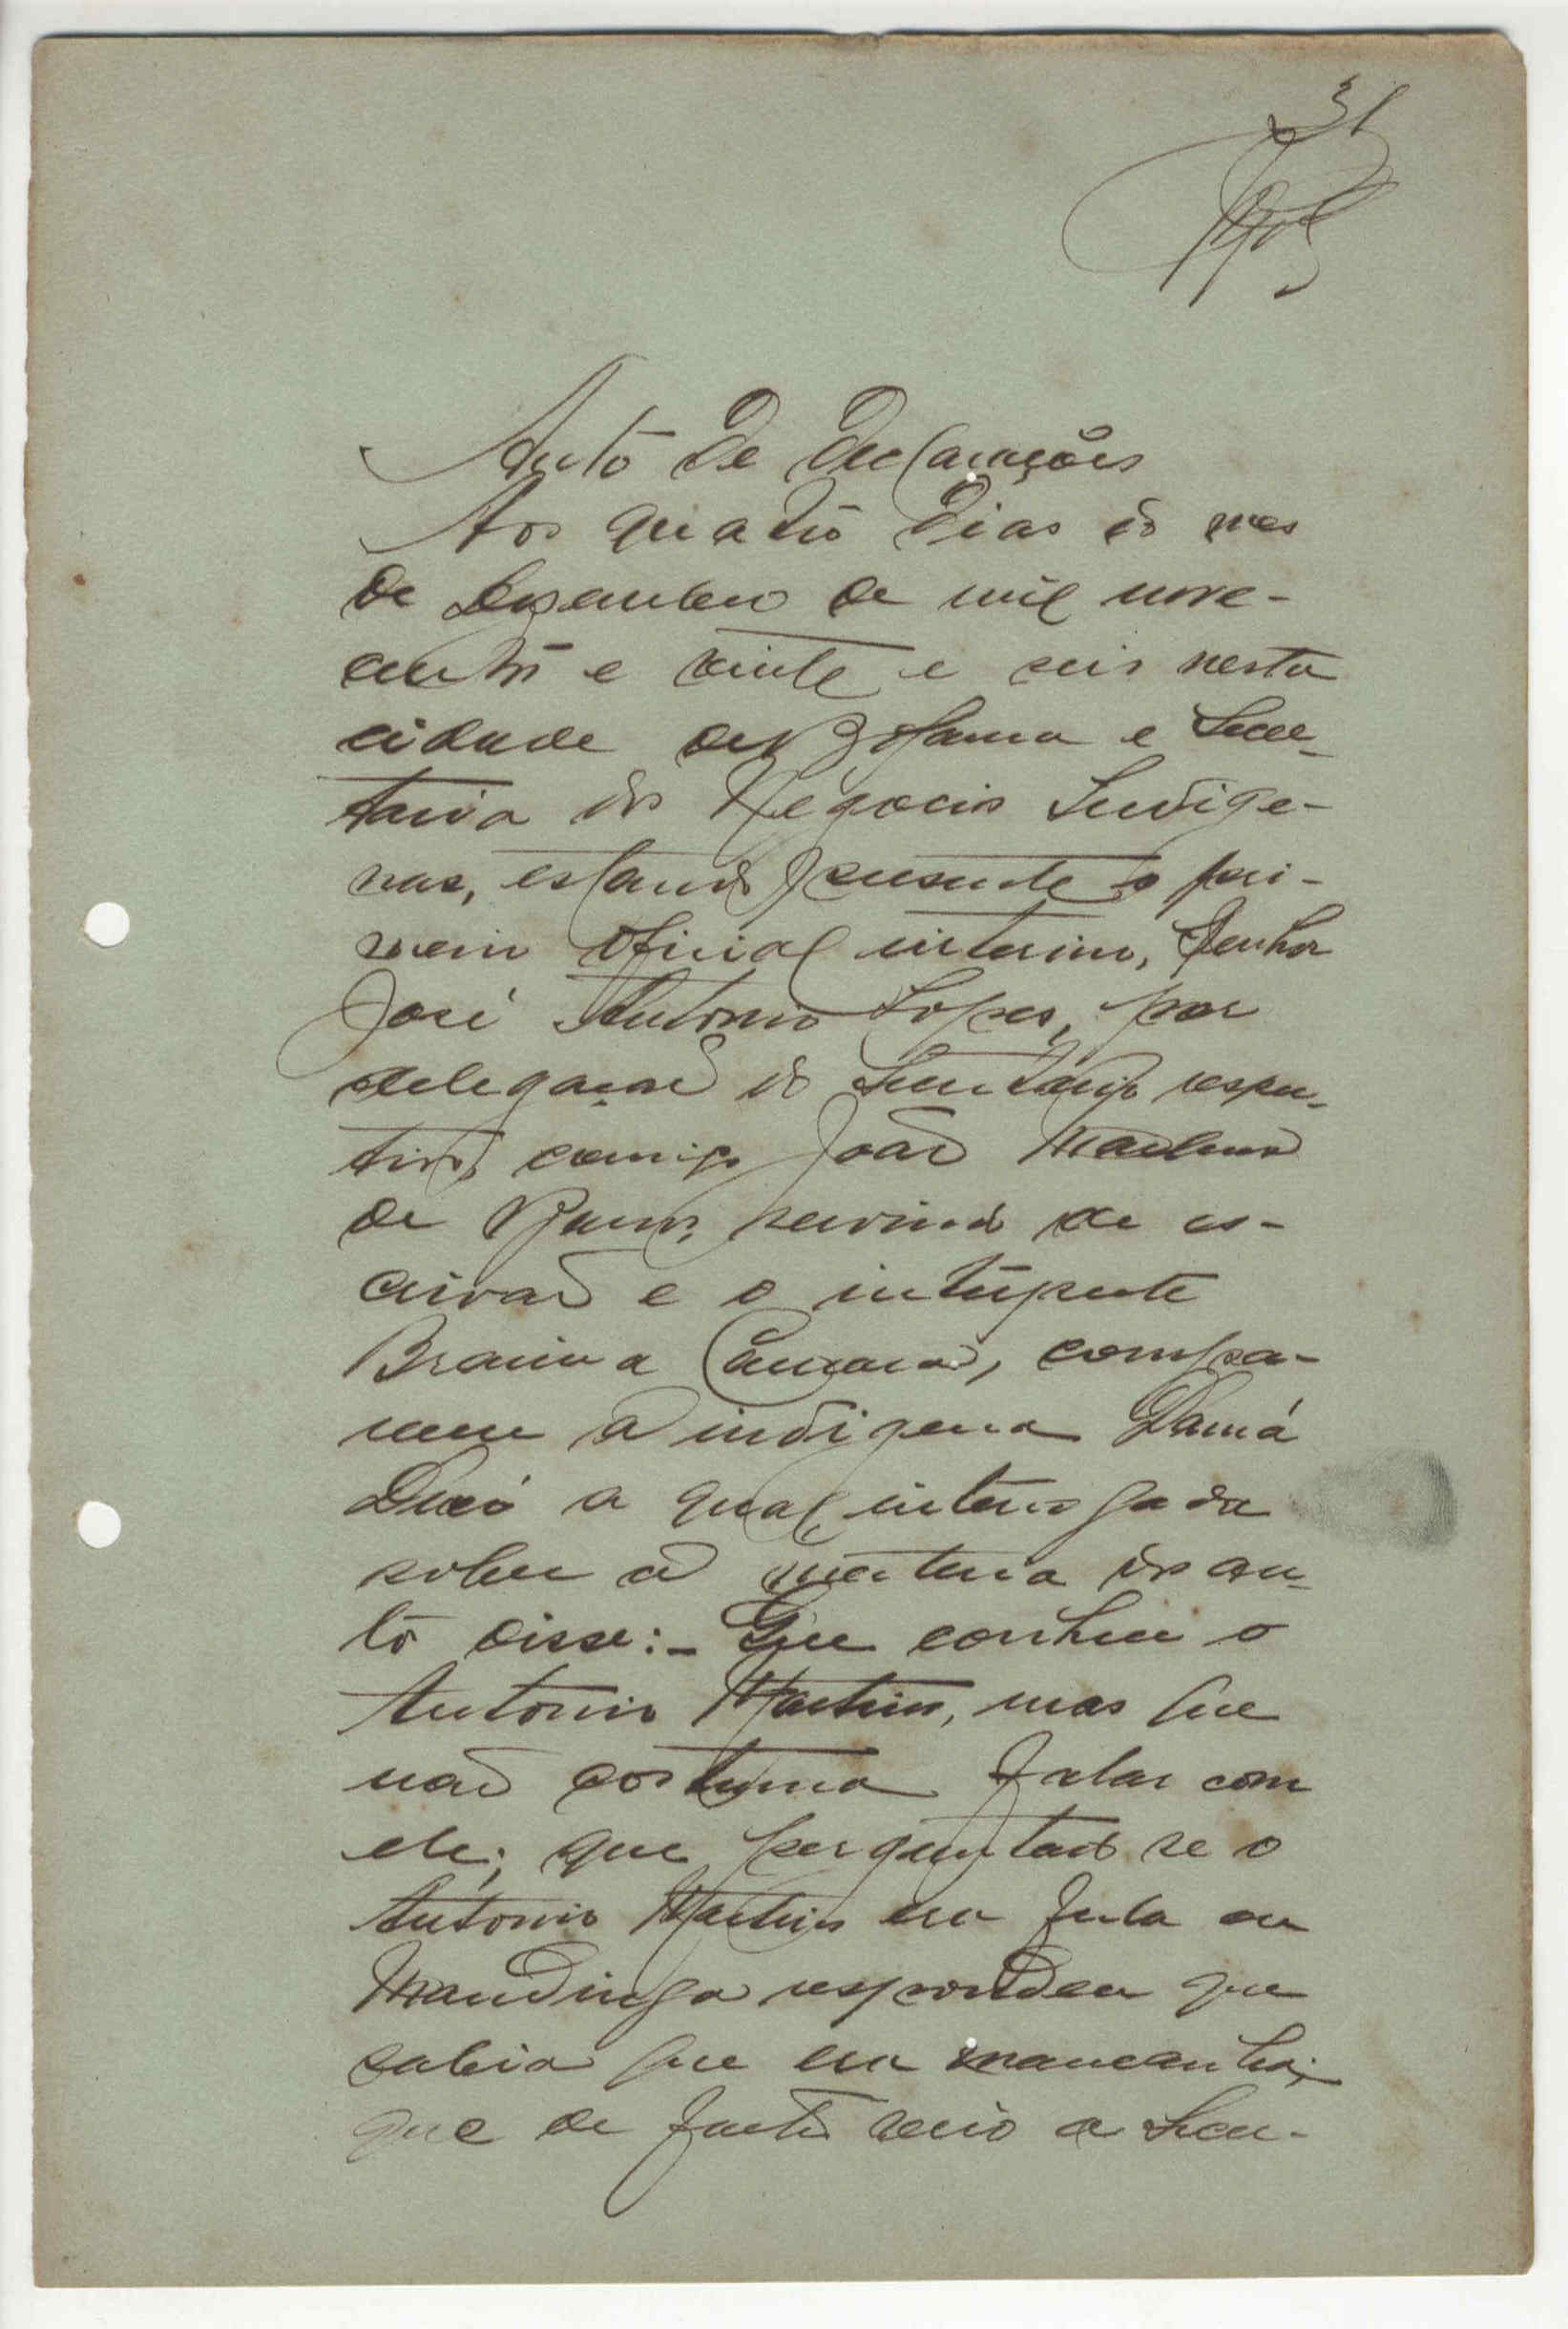 31
Auto de declarações
Aos quatro dias do mes
de Dezembro de mil nove-
centos e vinte e seis nesta
cidade de Bolama e Secre-
taria dos Negocios Indige-
nas, estando presente o pri-
meiro oficial interino, Senhor
José Antonio Lopes, por
delegação do Secretario respe-
tivo, comigo João
de Barros, servindo de es-
crivão e o interprete
Braima Camará, compa-
receu a indigena Damá
a qual interrogada
sobre a materia dos au-
to disse:- Que conhece o
Antonio Martins, mas que
não costuma falar com
ele; que perguntado se o
António Martins era fula ou
Mandinga respondeu que
sabia que era mancanha;
que de facto veio a Secre-